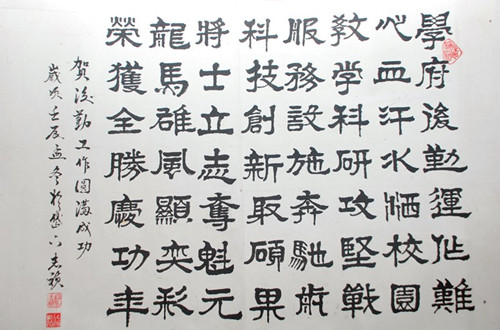 學府後勤運作難
心血汗水洒校園
教学科研攻堅戰
服務設施奔馳
科技創新取碩果
將士立志奪魁元
龍馬雄風顯奕彩
榮獲全勝慶功年
賀後勤工作圓滿成功
歲次壬辰孟冬於岱下